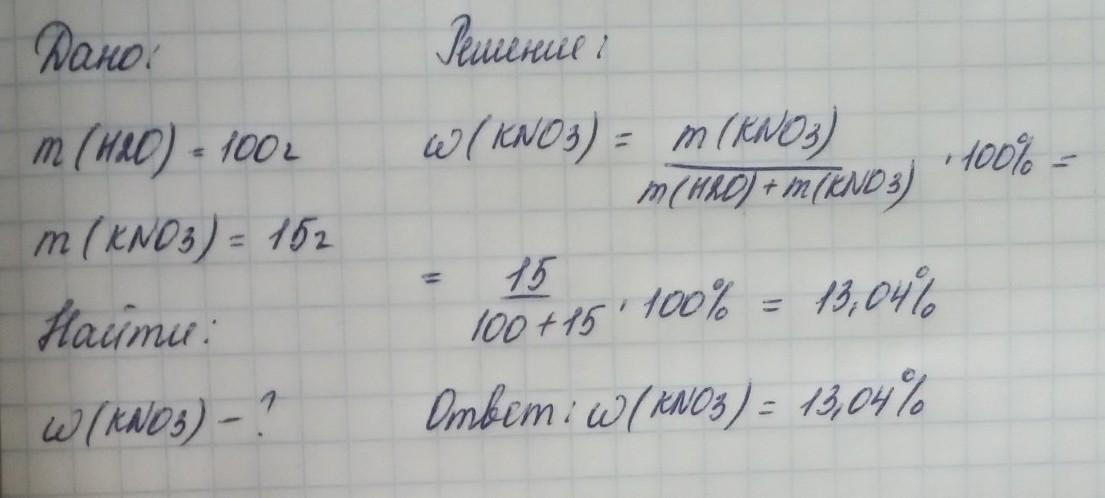 Дано:
m(H2O) = 100г
m(KNO3) = 15г
Найти:
ω(KNO3) - ?
Решение:
ω(KNO3) = m(KNO3) / m(H2O) + m(KNO3) · 100% =
= 15 / 100 + 15 · 100% = 13,04%
Ответ: ω(KNO3) = 13,04%